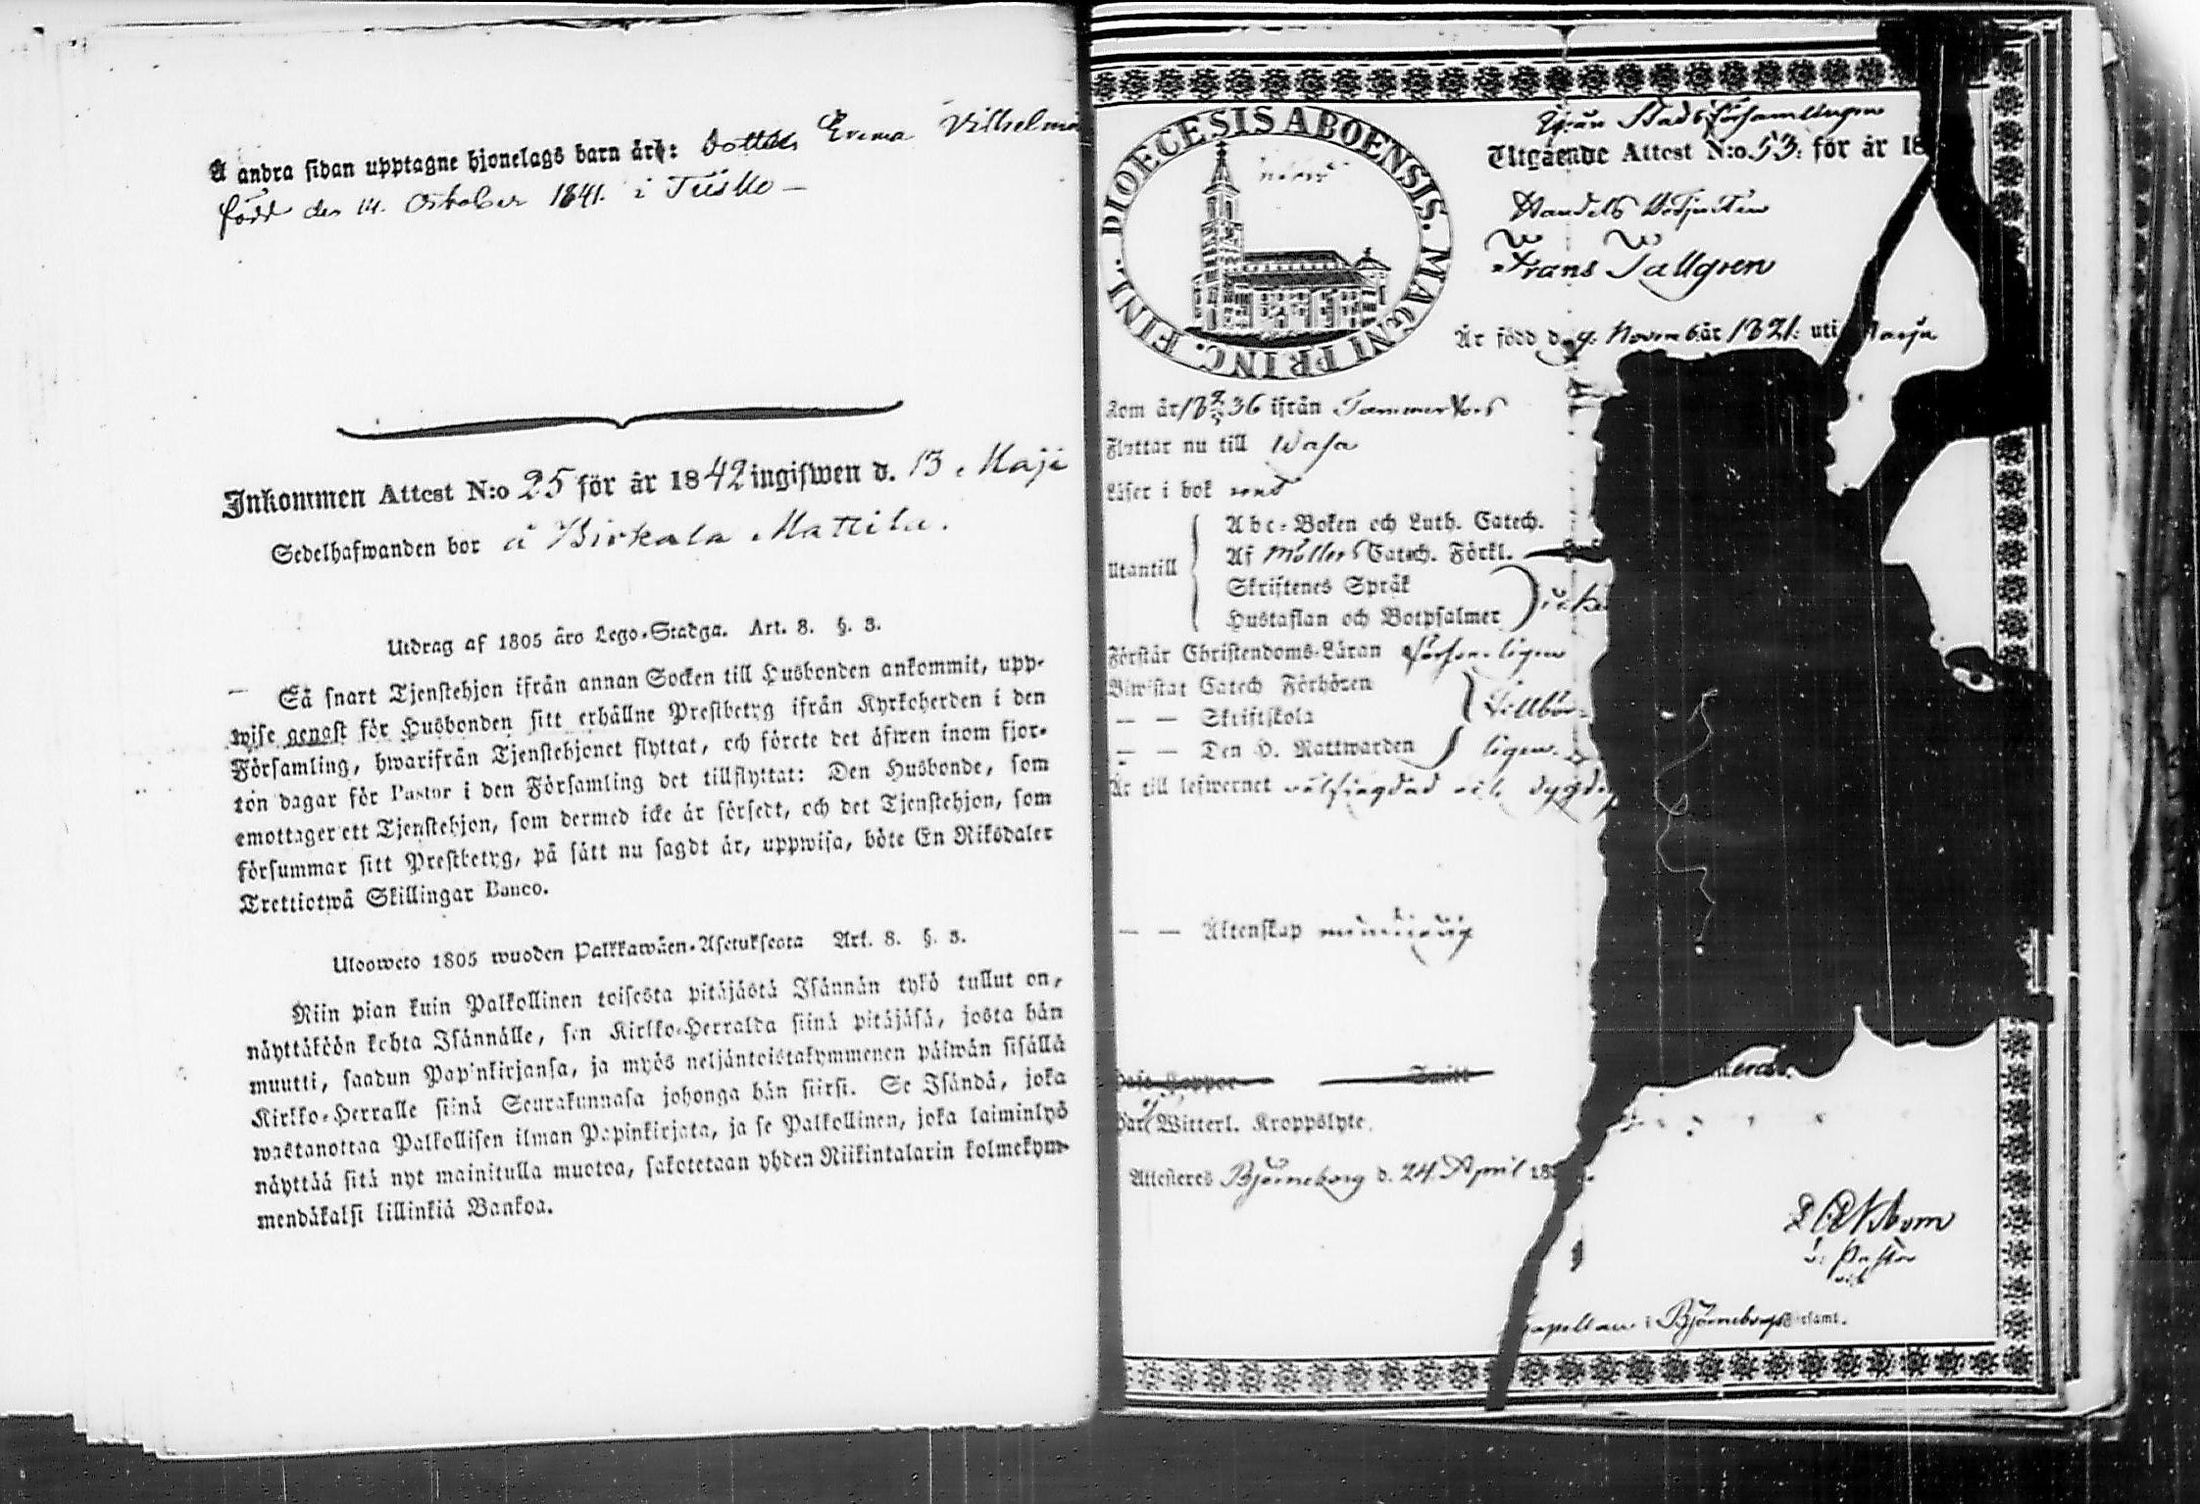 Å andra sidan upptagne hjonelags barn äro: Dottren Erica Vilhelmina
född den 14. October 1841. i Tusko —
Inkommen Attest N:o 25 för år 1842 ingifwen d. 13. Maji
Sedelhafwanden bor å Birkala Mattila.
Utdrag af 1805 års Lego-Stadga. Art. 8. §. 3.
— Så snart Tjenstehjon ifrån annan Socken till Husbonden ankommit, upp-
wise genast för Husbonden sitt erhållne Prestbetyg ifrån Kyrkoherden i den
Församling, hwarifrån Tjenstehjonet flyttat, och förete det äfwen inom fjor-
ton dagar för Pastor i den Församling det tillflyttat: Den Husbonde, som
emottager ett Tjenstehjon, som dermed icke är försedt, och det Tjenstehjon, som
försummar sitt Prestbetyg, på sätt nu sagdt är, uppwisa, böte En Riksdaler
Trettiotwå Skillingar Banco.
Uloosweto 1805 wuoden Palkkawäen-Asetuksesta Art. 8. §. 3.
Niin pian kuin Palkollinen toisesta pitäjästä Isännän tykö tullut on,
näyttäköön kohta Isännälle, sen Kirkko-Herralda siinä pitäjäsä, josta hän
muutti, saadun Papinkirjansa, ja myös neljäntoistakymmenen päiwän sisällä
Kirkko-Herralle siinä Seurakunnasa johonga hän siirsi. Se Isändä, joka
wastanottaa Palkollisen ilman Papinkirjata, ja se Palkollinen, joka laiminlyö
näyttää sitä nyt mainitulla muotoa, sakotetaan yhden Riikintalarin kolmekym-
mendäkaksi killinkiä Bankoa.
DIOECESIS ABOENSIS. MAGNI PRINC. FINL.
Ifrån Stads församlingen
Utgående Attest N:o 53. för år 18
Handels Betjenten
Frans Tallgren
Är född d. 9. November 1821. uti
Kom år 18 36 ifrån Tammerfors
Flyttar nu till Wasa
Läser i bok
Utantill
Abc-Boken och Luth. Catech.
Af Möllers Catech. Förkl.
Skriftenes Språk
Hustaflan och Botpsalmer
Förstår Christendoms-Läran försvarligen
Biwistat Catech Förhören
— — Skriftskola
Tillbör-
— — Den H. Nattwarden
ligen.
Är till lefwernet välfrägdad och dygdig
— — Äktenskap
Haft Koppor
Har Witterl. Kroppslyte.
Attesteres Björneborg d. 24. April 18
v: Pastor
och
Capellan i Björneborgs Församl.